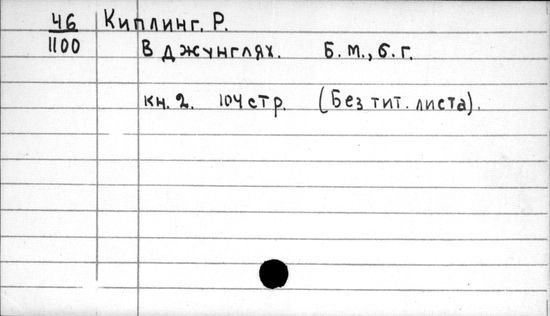 46 Киплинг. Р.
1100 В джунглях. Б. м., б. г.
кн. 2. 104 стр. (Без тит. листа).